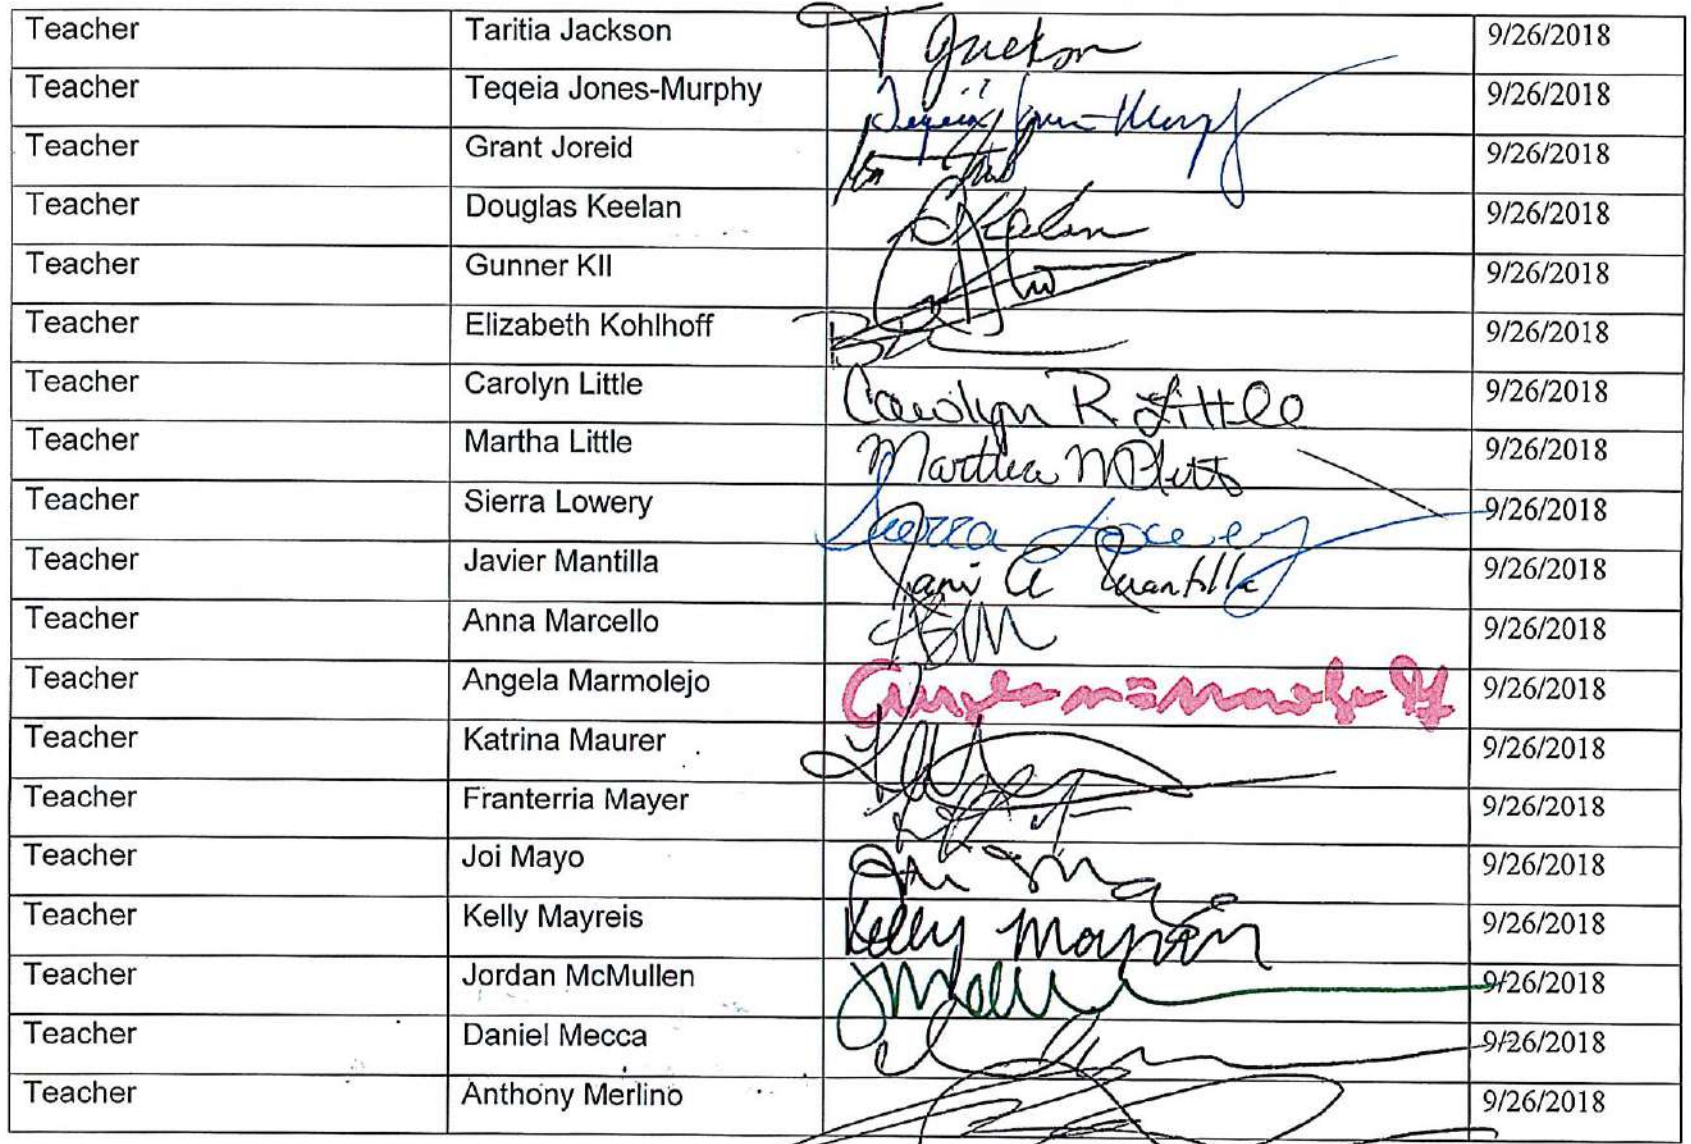 Teacher Taritia Jackson T Jackson 9/26/2018
Teacher Teqeia Jones-Murphy 9/26/2018
Teacher Grant Joreid 9/26/2018
Teacher Douglas Keelan 9/26/2018
Teacher Gunner KII 9/26/2018
Teacher Elizabeth Kohlhoff 9/26/2018
Teacher Carolyn Little Carolyn R Little 9/26/2018
Teacher Martha Little Martha 9/26/2018
Teacher Sierra Lowery Sierra Lowery 9/26/2018
Teacher Javier Mantilla 9/26/2018
Teacher Anna Marcello 9/26/2018
Teacher Angela Marmolejo 9/26/2018
Teacher Katrina Maurer 9/26/2018
Teacher Franterria Mayer 9/26/2018
Teacher Joi Mayo 9/26/2018
Teacher Kelly Mayreis Kelly 9/26/2018
Teacher Jordan McMullen 9/26/2018
Teacher Daniel Mecca 9/26/2018
Teacher Anthony Merlino 9/26/2018